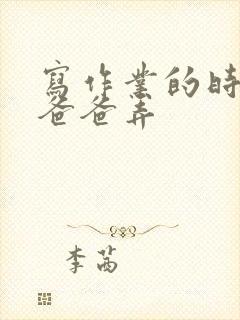 寫作業的時
爸爸弄
李茜